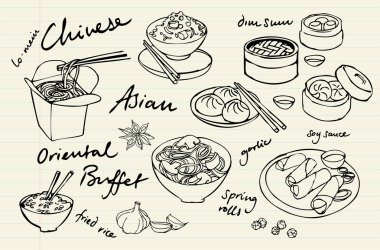 Chinese
lo-mein
dim sum
Asian
garlic
soy sauce
Oriental
Buffet
spring
rolls
fried rice